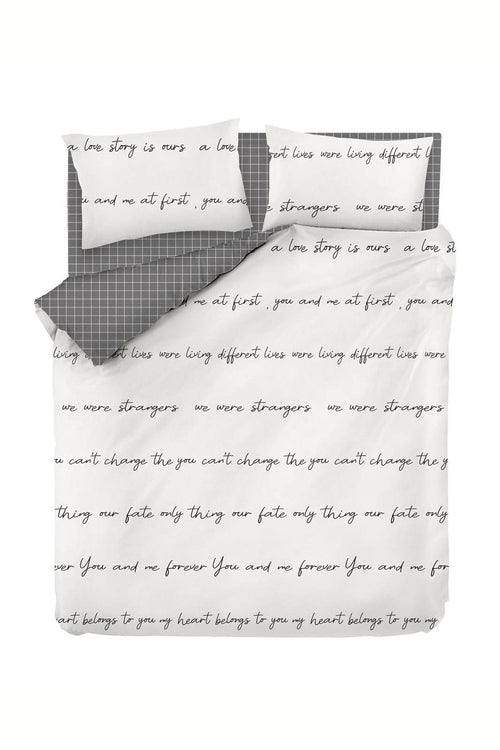 a love story is ours a love
u and me at first , you and
erent lives were living different l
e strangers we were st
a love story is ours a love st
me at first , you and me at first , you and
living different lives were living different lives were living different lives were
we were strangers we were strangers we were strangers
u can't change the you can't change the you can't change the y
thing our fate only thing our fate only thing our fate only
ever You and me forever You and me forever You and me for
eart belongs to you my heart belongs to you my heart belongs to you my